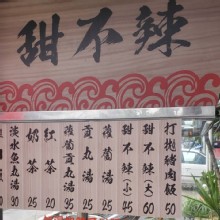 甜不辣
打拋豬肉飯 50
甜不辣(大) 60
甜不辣(小) 45
蘿蔔湯 25
貢丸湯 25
蘿蔔貢丸湯 35
紅茶 20
奶茶 25
淡水魚丸湯 30